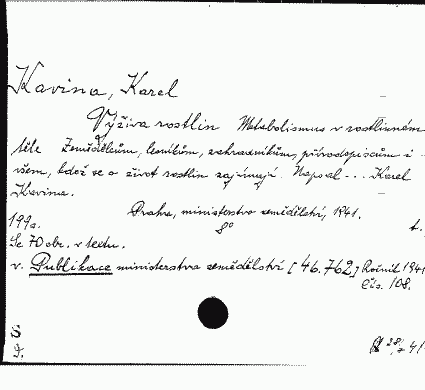 Kavina, Karel
Výživa rostlin Metabolismus v rostlinném
těle Zemědělcům, lesníkům, zahradníkům, přírodopiscům i
všem, kdož se o život rostlin zajímají. Napsal ... Karel
Kavina.
Praha, ministerstvo zemědělství, 1941.
199 s. 8° t.
Se 70 obr. v textu.
v. Publikace ministerstva zemědělství [46.762] Ročník 1941
Čís. 108.
S